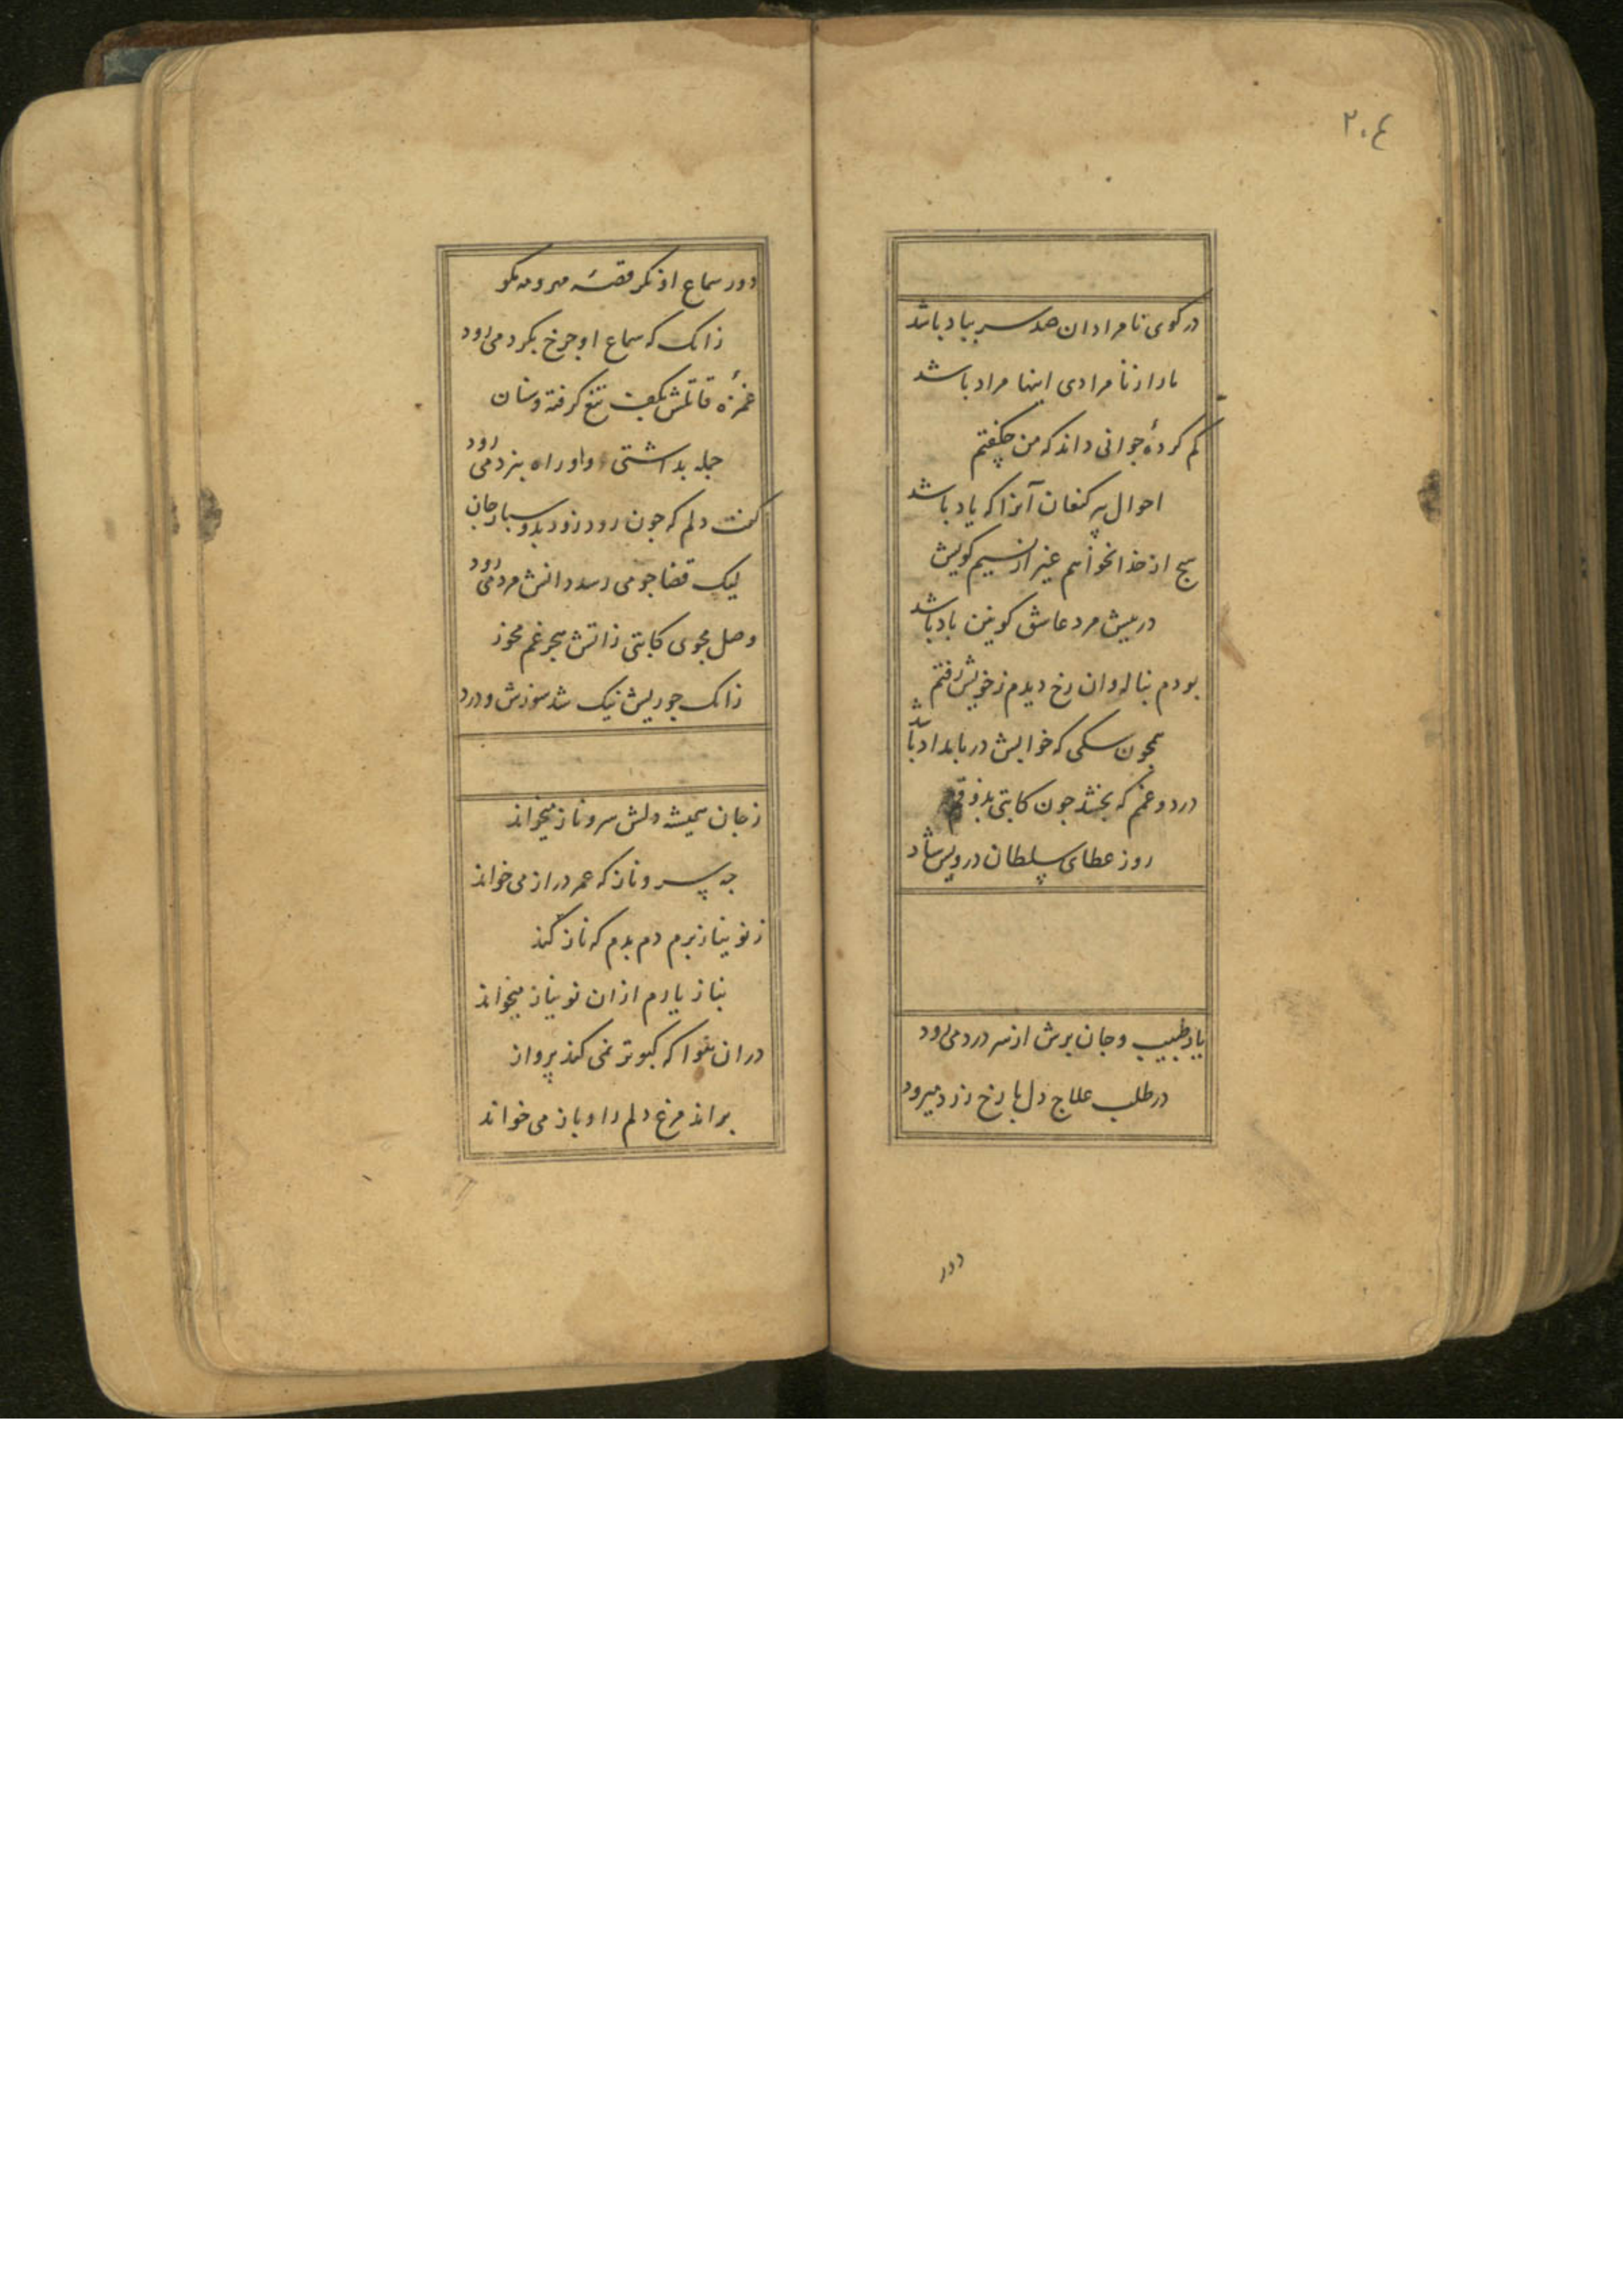 ٢٠٤
در کوی نامرادان صد سر بباد باشد
ما را ز نامرادی اینها مراد باشد
کم کردهٔ جوانی داند که من چکفتم
احوال پیر کنعان آنرا که یاد باشد
هیچ از خدا نخواهم غیر از نسیم کویش
در پیش مرد عاشق کونین باد باشد
بودم بناله وان رخ دیدم ز خویش رفتم
همچون سکی که خوابش در بامداد باشد
درد و غم که بخشد چون کاتبی بذوقم
روز عطای سلطان درویش شاد
یار طبیب و جان برش از سر درد می رود
در طلب علاج دل با رخ زرد میرود
دور
دور سماع او نکر قصهٔ مهر و مه مکو
زانک که سماع او چرخ بکرد می رود
غمزهٔ قاتلش بکف تیغ کرفته و سنان
جمله بداشتی واو راه نبرد می رود
کفت دلم که چون رود زود بدو سپار جان
لیک قضا چو می رسد دانش مرد می رود
وصل مجوی کاتبی ز اتش هجر غم مخور
زانک چو ریش نیک شد سوزش و درد
ز جان همیشه دلش سرو ناز میخواند
چه سرو ناز که عمر دراز می خواند
ز نو نیاز برم دم بدم که ناز کند
بناز یارم ازان نو نیاز میخواند
دران هوا که کبوتر نمی کند پرواز
براند مرغ دلم را و باز می خواند